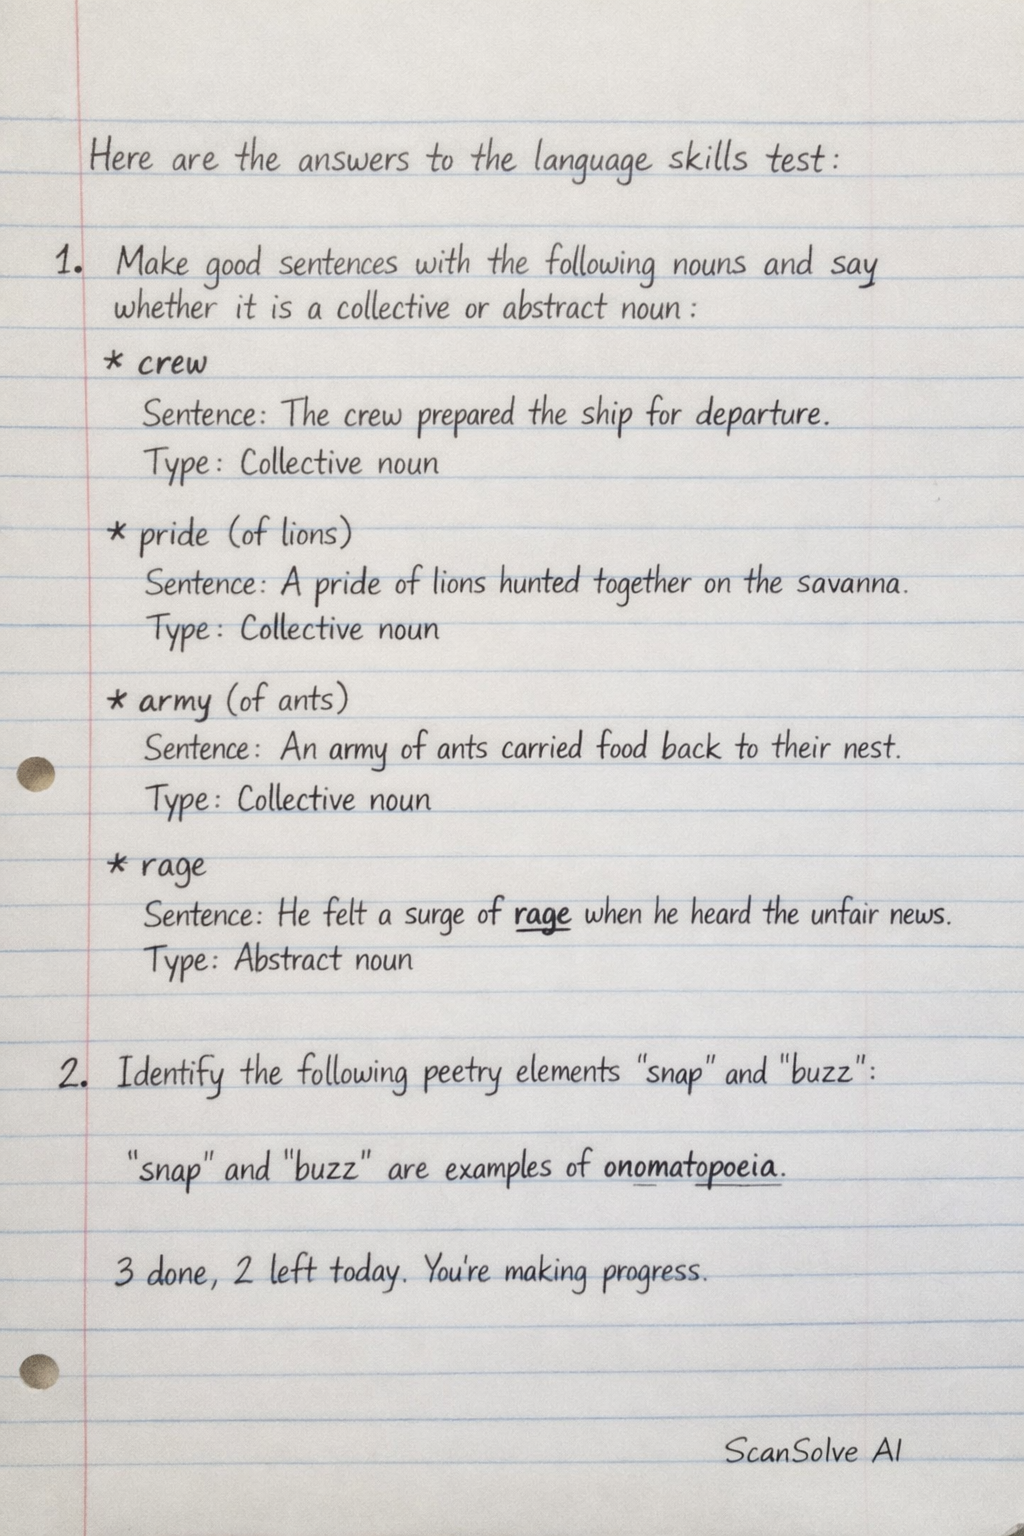 Here are the answers to the language skills test:
1. Make good sentences with the following nouns and say
whether it is a collective or abstract noun:
* crew
Sentence: The crew prepared the ship for departure.
Type: Collective noun
* pride (of lions)
Sentence: A pride of lions hunted together on the savanna.
Type: Collective noun
* army (of ants)
Sentence: An army of ants carried food back to their nest.
Type: Collective noun
* rage
Sentence: He felt a surge of rage when he heard the unfair news.
Type: Abstract noun
2. Identify the following peetry elements "snap" and "buzz":
"snap" and "buzz" are examples of onomatopoeia.
3 done, 2 left today. You're making progress.
ScanSolve AI